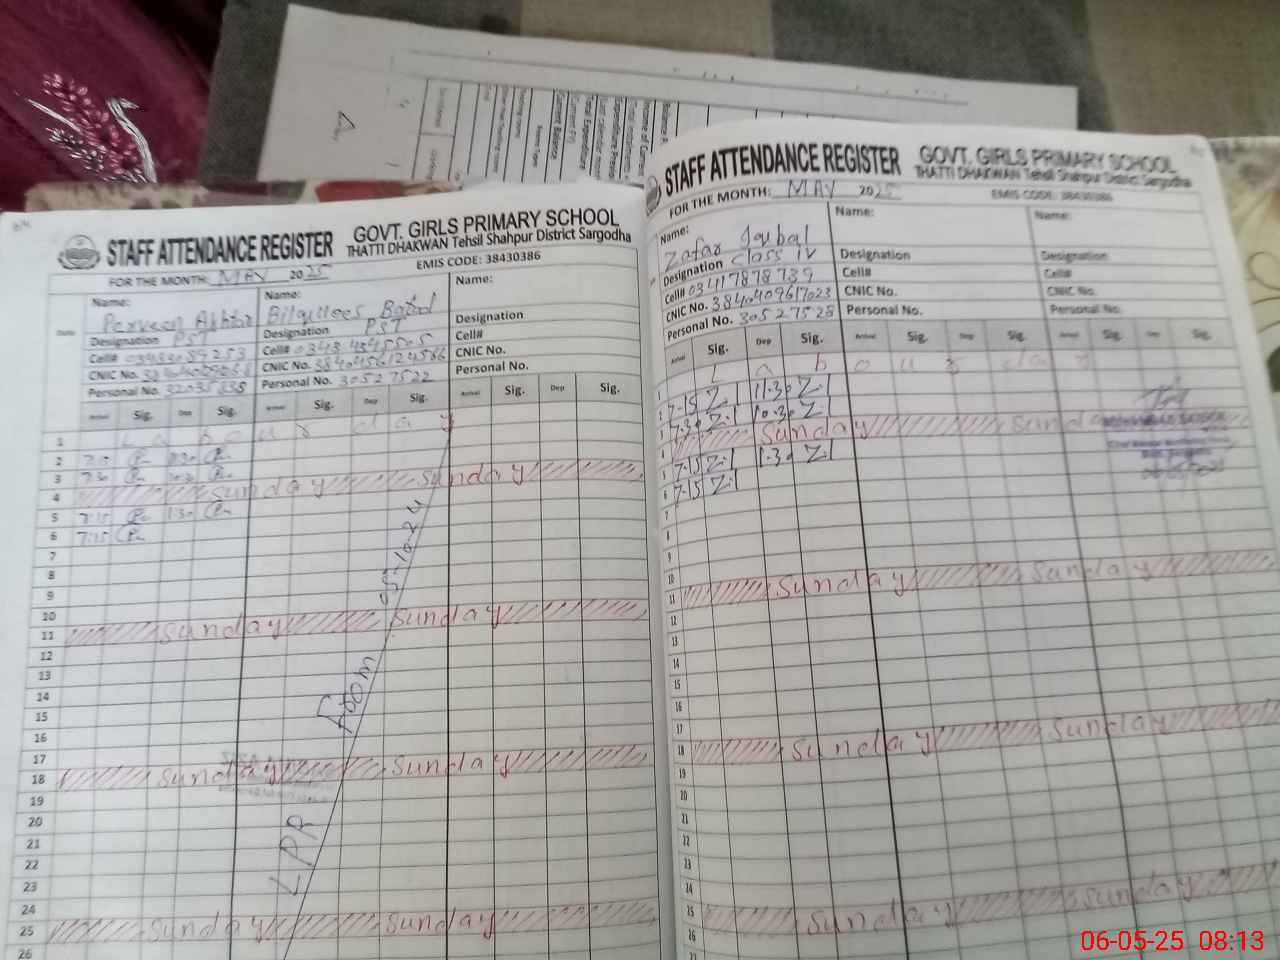 STAFF ATTENDANCE REGISTER
GOVT. GIRLS PRIMARY SCHOOL
THATTI DHAKWAN Tehsil Shahpur District Sargodha
FOR THE MONTH: MAY 2025
EMIS CODE: 38430386
Name: Name: Name:
Perveen Akhtar Bilquees Batool
Designation PST Designation PST Designation
Cell# Cell# 0343 4345505 Cell#
CNIC No. CNIC No. CNIC No.
Personal No. Personal No. 30527522 Personal No.
Date Arrival Sig. Dep Sig. Arrival Sig. Dep Sig. Arrival Sig. Dep Sig.
1 Labour day
2 7:15
3 7:30
4 Sunday Sunday
5 7:15 1:30
6 7:15
7
8
9
10
11 Sunday Sunday
12
13
14
15
16
17
18 Sunday Sunday
19
20
21
22
23
24
25 Sunday Sunday
26
LPR From
STAFF ATTENDANCE REGISTER
GOVT. GIRLS PRIMARY SCHOOL
THATTI DHAKWAN Tehsil Shahpur District Sargodha
FOR THE MONTH: MAY 2025
EMIS CODE: 38430386
Name: Name: Name:
Zafar Iqbal
Designation Class IV Designation Designation
Cell# 03417878739 Cell# Cell#
CNIC No. 3840409617023 CNIC No. CNIC No.
Personal No. 30527528 Personal No. Personal No.
Arrival Sig. Dep Sig. Arrival Sig. Dep Sig. Arrival Sig. Dep Sig.
1 Labour day
2 7:15 Z.I 11:30 Z.I
3 7:30 Z.I 10:30 Z.I
4 Sunday Sunday
5 7:15 Z.I 1:30 Z.I
6 7:15 Z.I
7
8
9
10
11 Sunday Sunday
12
13
14
15
16
17
18 Sunday Sunday
19
20
21
22
23
24
25 Sunday Sunday
26
06-05-25 08:13